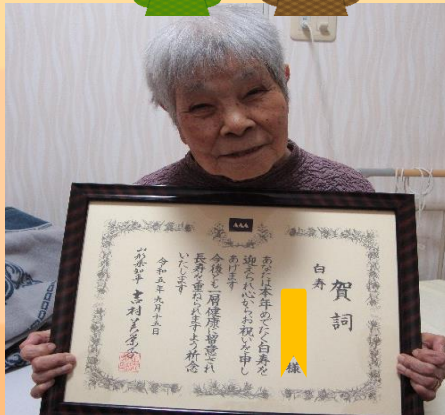 賀詞
白寿
様
あなたは本年めでたく白寿を
迎えられ心からお祝いを申し
あげます
今後とも一層健康に留意され
長寿を重ねられますよう祈念
いたします
令和五年九月十五日
山形県知事 吉村美栄子